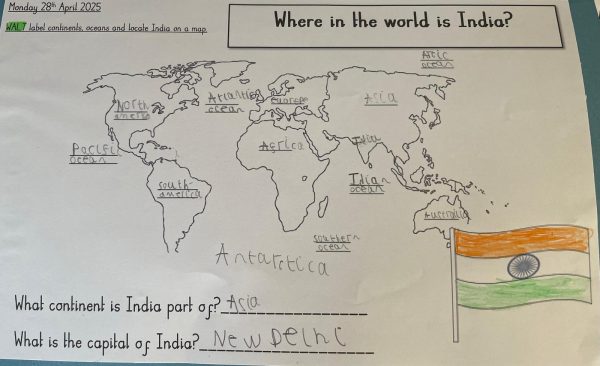 Monday 28th April 2025
WALT label continents, oceans and locale India on a map.
Where in the world is India?
Artic
ocean
North
america
Atlantic
ocean
europe
Asia
Pacific
ocean
Africa
India
Indian
ocean
south
america
Australia
southern
ocean
Antarctica
What continent is India part of? Asia
What is the capital of India? New Delhi